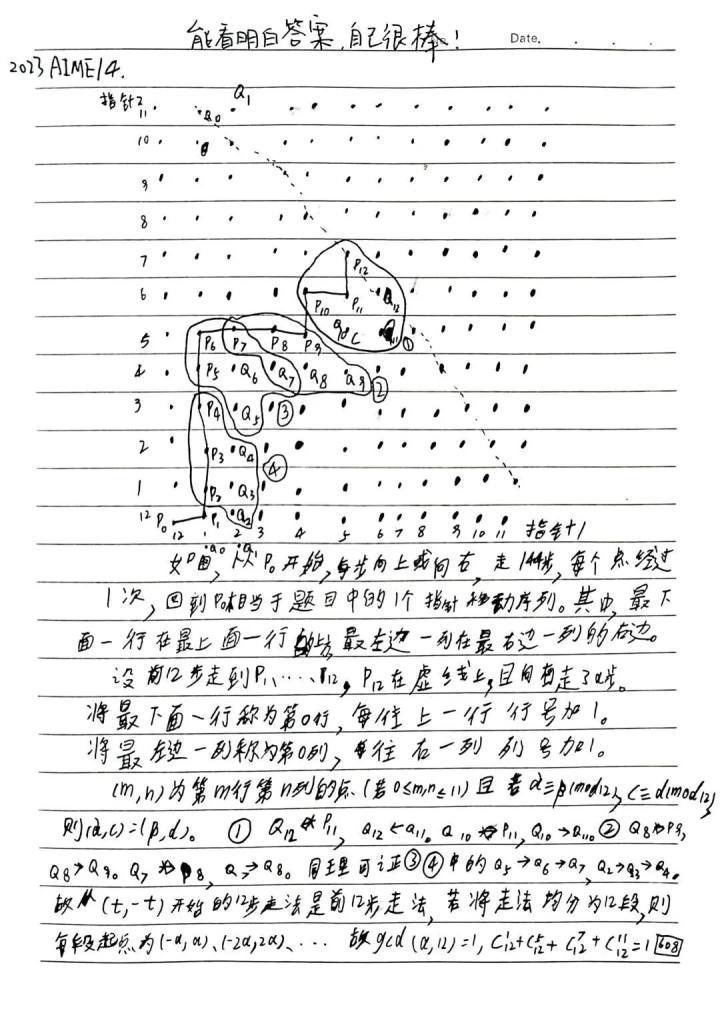 能看明白答案,自己很棒! Date.
2023 AIME 14.
指针2
11 Q0 Q1
10
9
8
7 P12
6 P10 P11 Q12
5 P6 P7 P8 P9 ①
4 P5 Q6 Q7 Q8 Q9 ②
3 P4 Q5 ③
2 P3 Q4 ④
1 P2 Q3
12 P0 P1 Q2
12 1 2 3 4 5 6 7 8 9 10 11 指针1
如图,从P0开始,每步向上或向右,走144步,每个点经过
1次,回到P0相当于题目中的1个指针移动序列。其中,最下
面一行在最上面一行的上,最左边一列在最右边一列的右边。
设前12步走到P1,……P12,P12在虚线上,且向右走了α步。
将最下面一行称为第0行,每往上一行行号加1。
将最左边一列称为第0列,每往右一列列号加1。
(m,n)为第m行第n列的点(若0≤m,n≤11)且若α≡β(mod12),c≡d(mod12)
则(α,c)=(β,d)。 ① Q12 P11, Q12←Q11。Q10 P11, Q10→Q11。② Q8 P9,
Q8→Q9。Q7 P8, Q7→Q8。同理可证③④中的Q5→Q6→Q7, Q2→Q3→Q4。
故从(t,-t)开始的12步走法是前12步走法,若将走法均分为12段,则
每段起点为(-α,α)、(-2α,2α)、… 故gcd(α,12)=1, C₁₂¹+C₁₂⁵+C₁₂⁷+C₁₂¹¹=1608